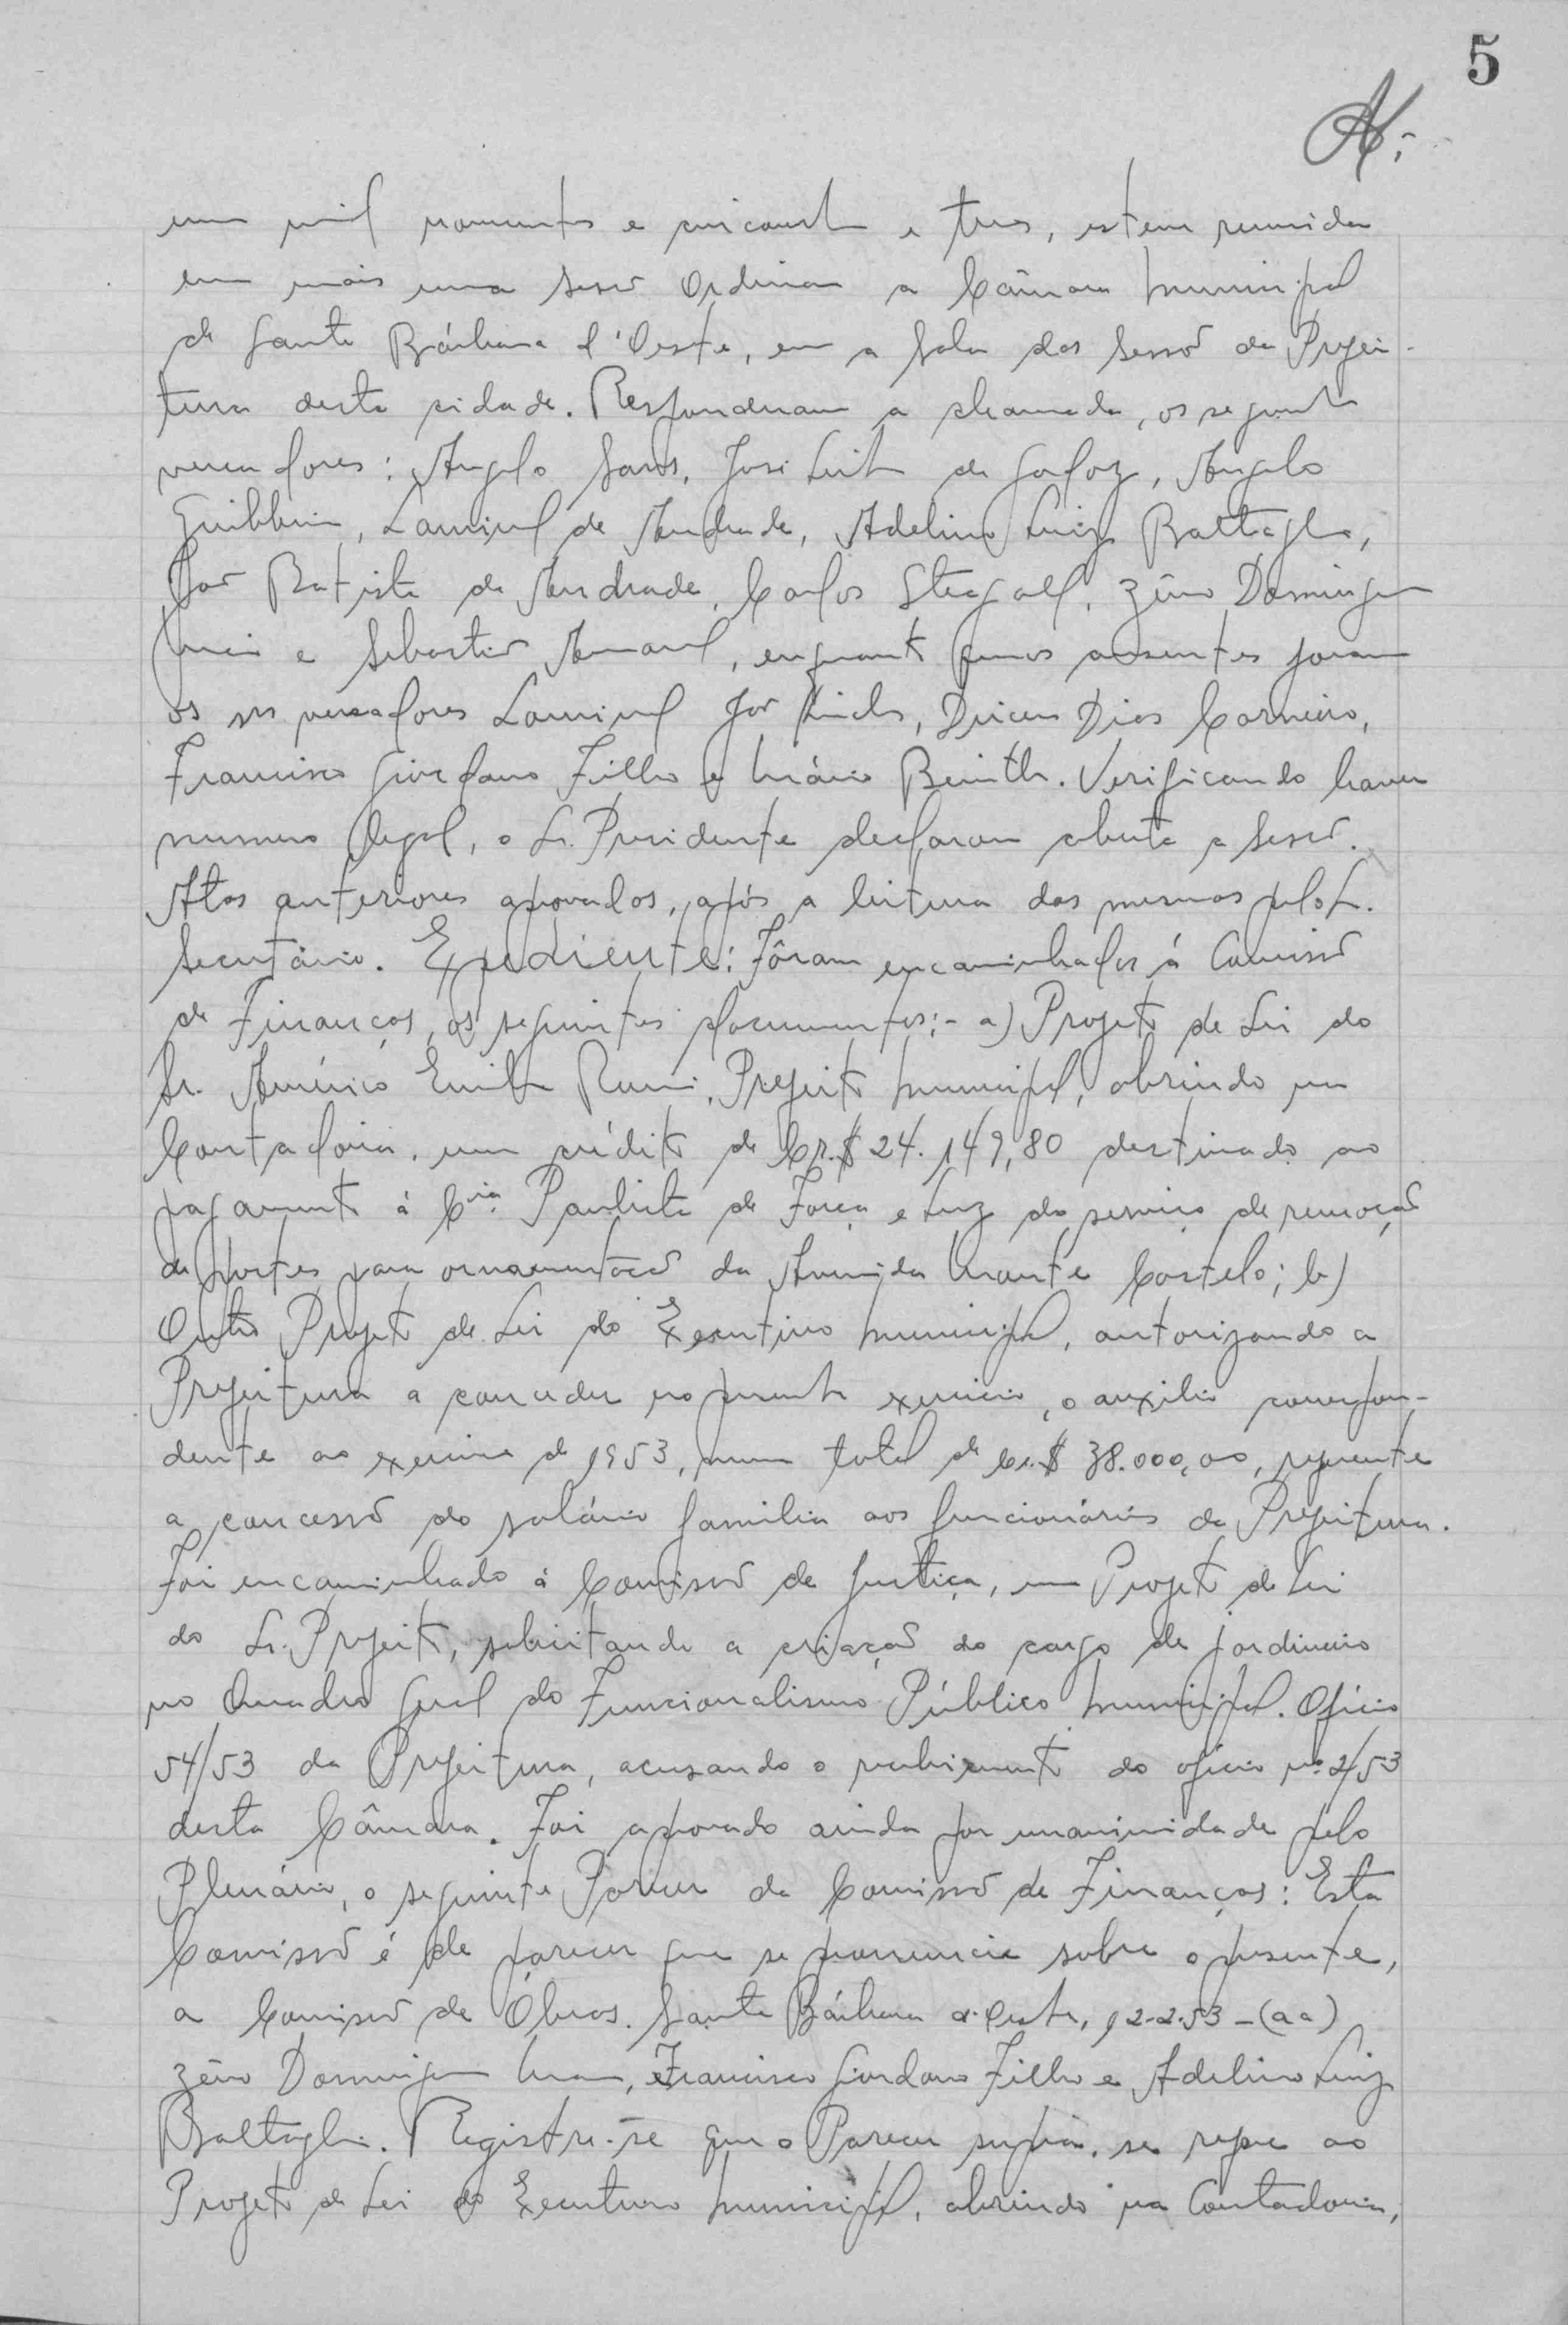 5
um mil novecentos e cincoenta e tres, esteve reunida
em mais uma sessão Ordinaria a Câmara Municipal
de Santa Bárbara d'Oeste, em a Sala das Sessões da Prefei-
tura desta cidade. Responderam a chamada, os seguintes
vereadores: Angelo Sans, José Leite de Godoy, Angelo
Lourival de Andrade, Adelino Luiz Battaglia,
João Batista de Andrade, Carlos Stegall, Zêno Domingues
Maia e Sebastião Amaral, enquanto ausentes foram
os srs vereadores Lourival João Dirceu Dias Carneiro,
Francisco Giordano Filho e Mário. Verificando haver
numero legal, o Sr. Presidente declarou aberta a sessão.
Atas anteriores aprovadas, após a leitura das mesmas pelo Sr.
Secretário. Expediente: Fôram encaminhados á Comissão
de Finanças, os seguintes documentos:- a) Projeto de Lei do
Sr. Américo Emilio Romi, Prefeito Municipal, abrindo na
Contadoria, um crédito de Cr.$ 24.149,80 destinado ao
pagamento á Cia. Paulista de Força e Luz do serviço de remoção
de postes para ornamentação da Avenida Monte Castelo; b)
Outro Projeto de Lei do Executivo Municipal, autorizando a
Prefeitura a conceder no presente exercicio, o auxilio correspon-
dente ao exercicio de 1953, num total de Cr.$ 38.000,00, referente
a concessão do salário familia aos funcionários da Prefeitura.
Foi encaminhado á Comissão de Justiça, um Projeto de Lei
do Sr. Prefeito, solicitando a criação do cargo de jardineiro
no Quadro Geral do Funcionalismo Público Municipal. Oficio
54/53 da Prefeitura, acusando o recebimento do oficio nº 2/53
desta Câmara. Foi aprovado ainda por unanimidade pelo
Plenário, o seguinte Parecer da Comissão de Finanças: Esta
Comissão é de parecer que se pronuncie sobre o presente,
a Comissão de Obras. Santa Bárbara d'Oeste, 12-2-53 - (aa)
Zêno Domingues Maia, Francisco Giordano Filho e Adelino Luiz
Battaglia. Registre-se que o Parecer supra, se refere ao
Projeto de Lei do Executivo Municipal, abrindo na Contadoria,